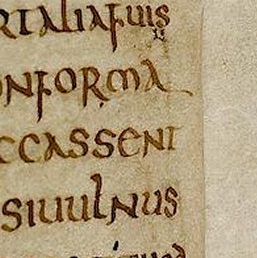 RTALIAFUIS
ONFORMA
CCASSENT
SIUULNUS